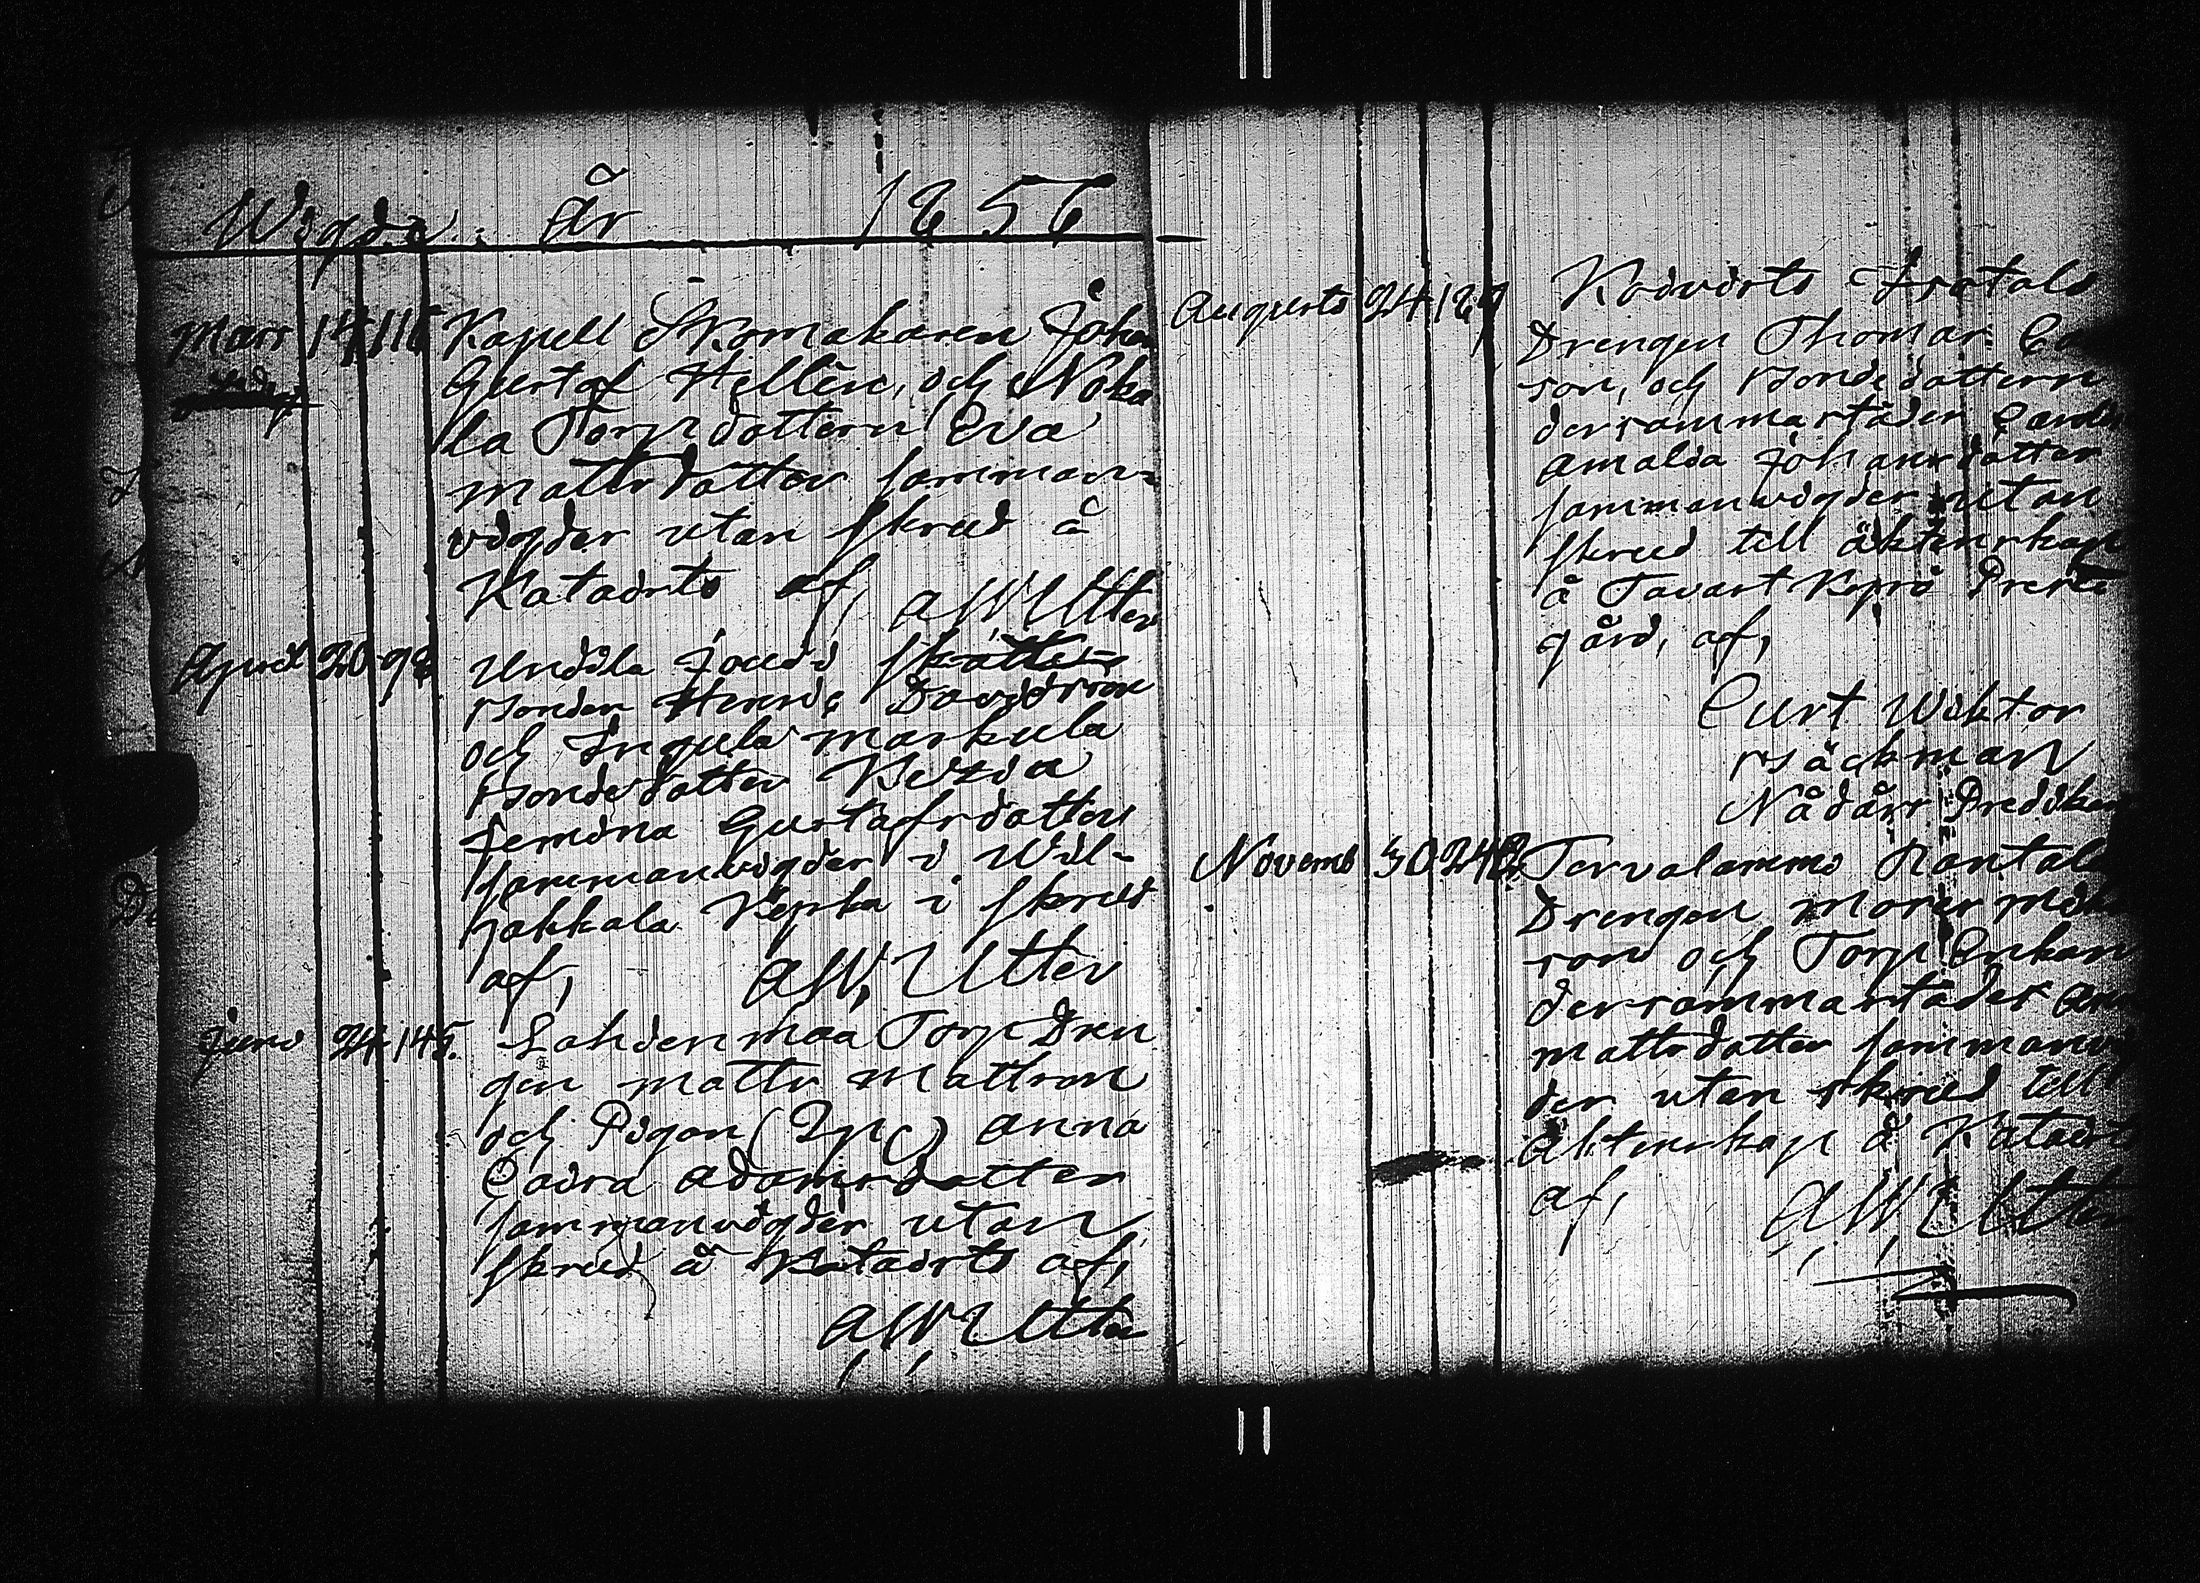 Wigda År 1856
Mars 14 116 Kapell Skomakaren Johan
Gustaf Hellen, och Noka
la Torpdottern Eva
Mattsdotter samman-
vigder utan skrud å
Kataorts af, AW Utter
April 20 98 Undila Joudi skatte-
bonden Henric Davidsson
och Ingula Markula
Bondedotter Kezia
Jemina Gustafsdotter
sammanvigder i Wil-
jakkala Kyrka i skrud
af, AW, Utter
Juni 24 145. Lahdenmaa Torp Dren
gen Matts Mattson
och Pigan Anna
Caisa Adamsdotter
sammanvigder utan
skrud å af,
AW Utter
Augusti 24 Koivisto
Drengen Thomas
son, och Bondedottern
dersammastäder
Amalia Johansdotter
sammanvigder utan
skrud till äktenskap
å Tavast Kyrö Prest
gård, af,
Curt Wiktor
Bäckman
Nådårs Predikan
Novemb 30 Tervalammi Rantala
Drengen
son och Torp Enkan
dersammastädes
Mattsdotter sammanvig
der utan skrud till
Äktenskap å
af, AW Utter